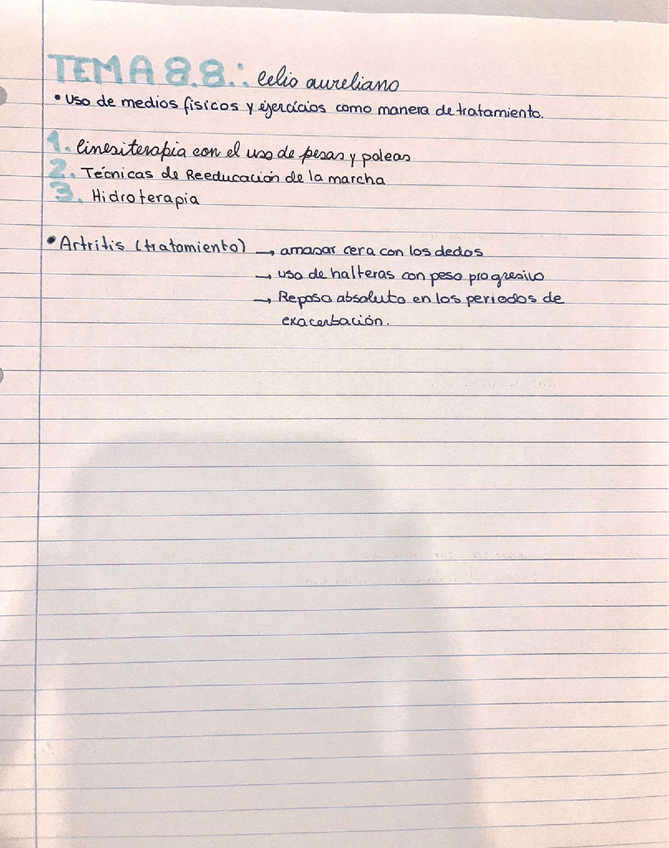 TEMA 8.8.: Celio aureliano
• Uso de medios físicos y ejercicios como manera de tratamiento.
1. Cinesiterapia con el uso de pesas y poleas
2. Técnicas de Reeducación de la marcha
3. Hidroterapia
• Artritis (tratamiento) → amasar cera con los dedos
→ uso de halteras con peso progresivo
→ Reposo absoluto en los periodos de
exacerbación.